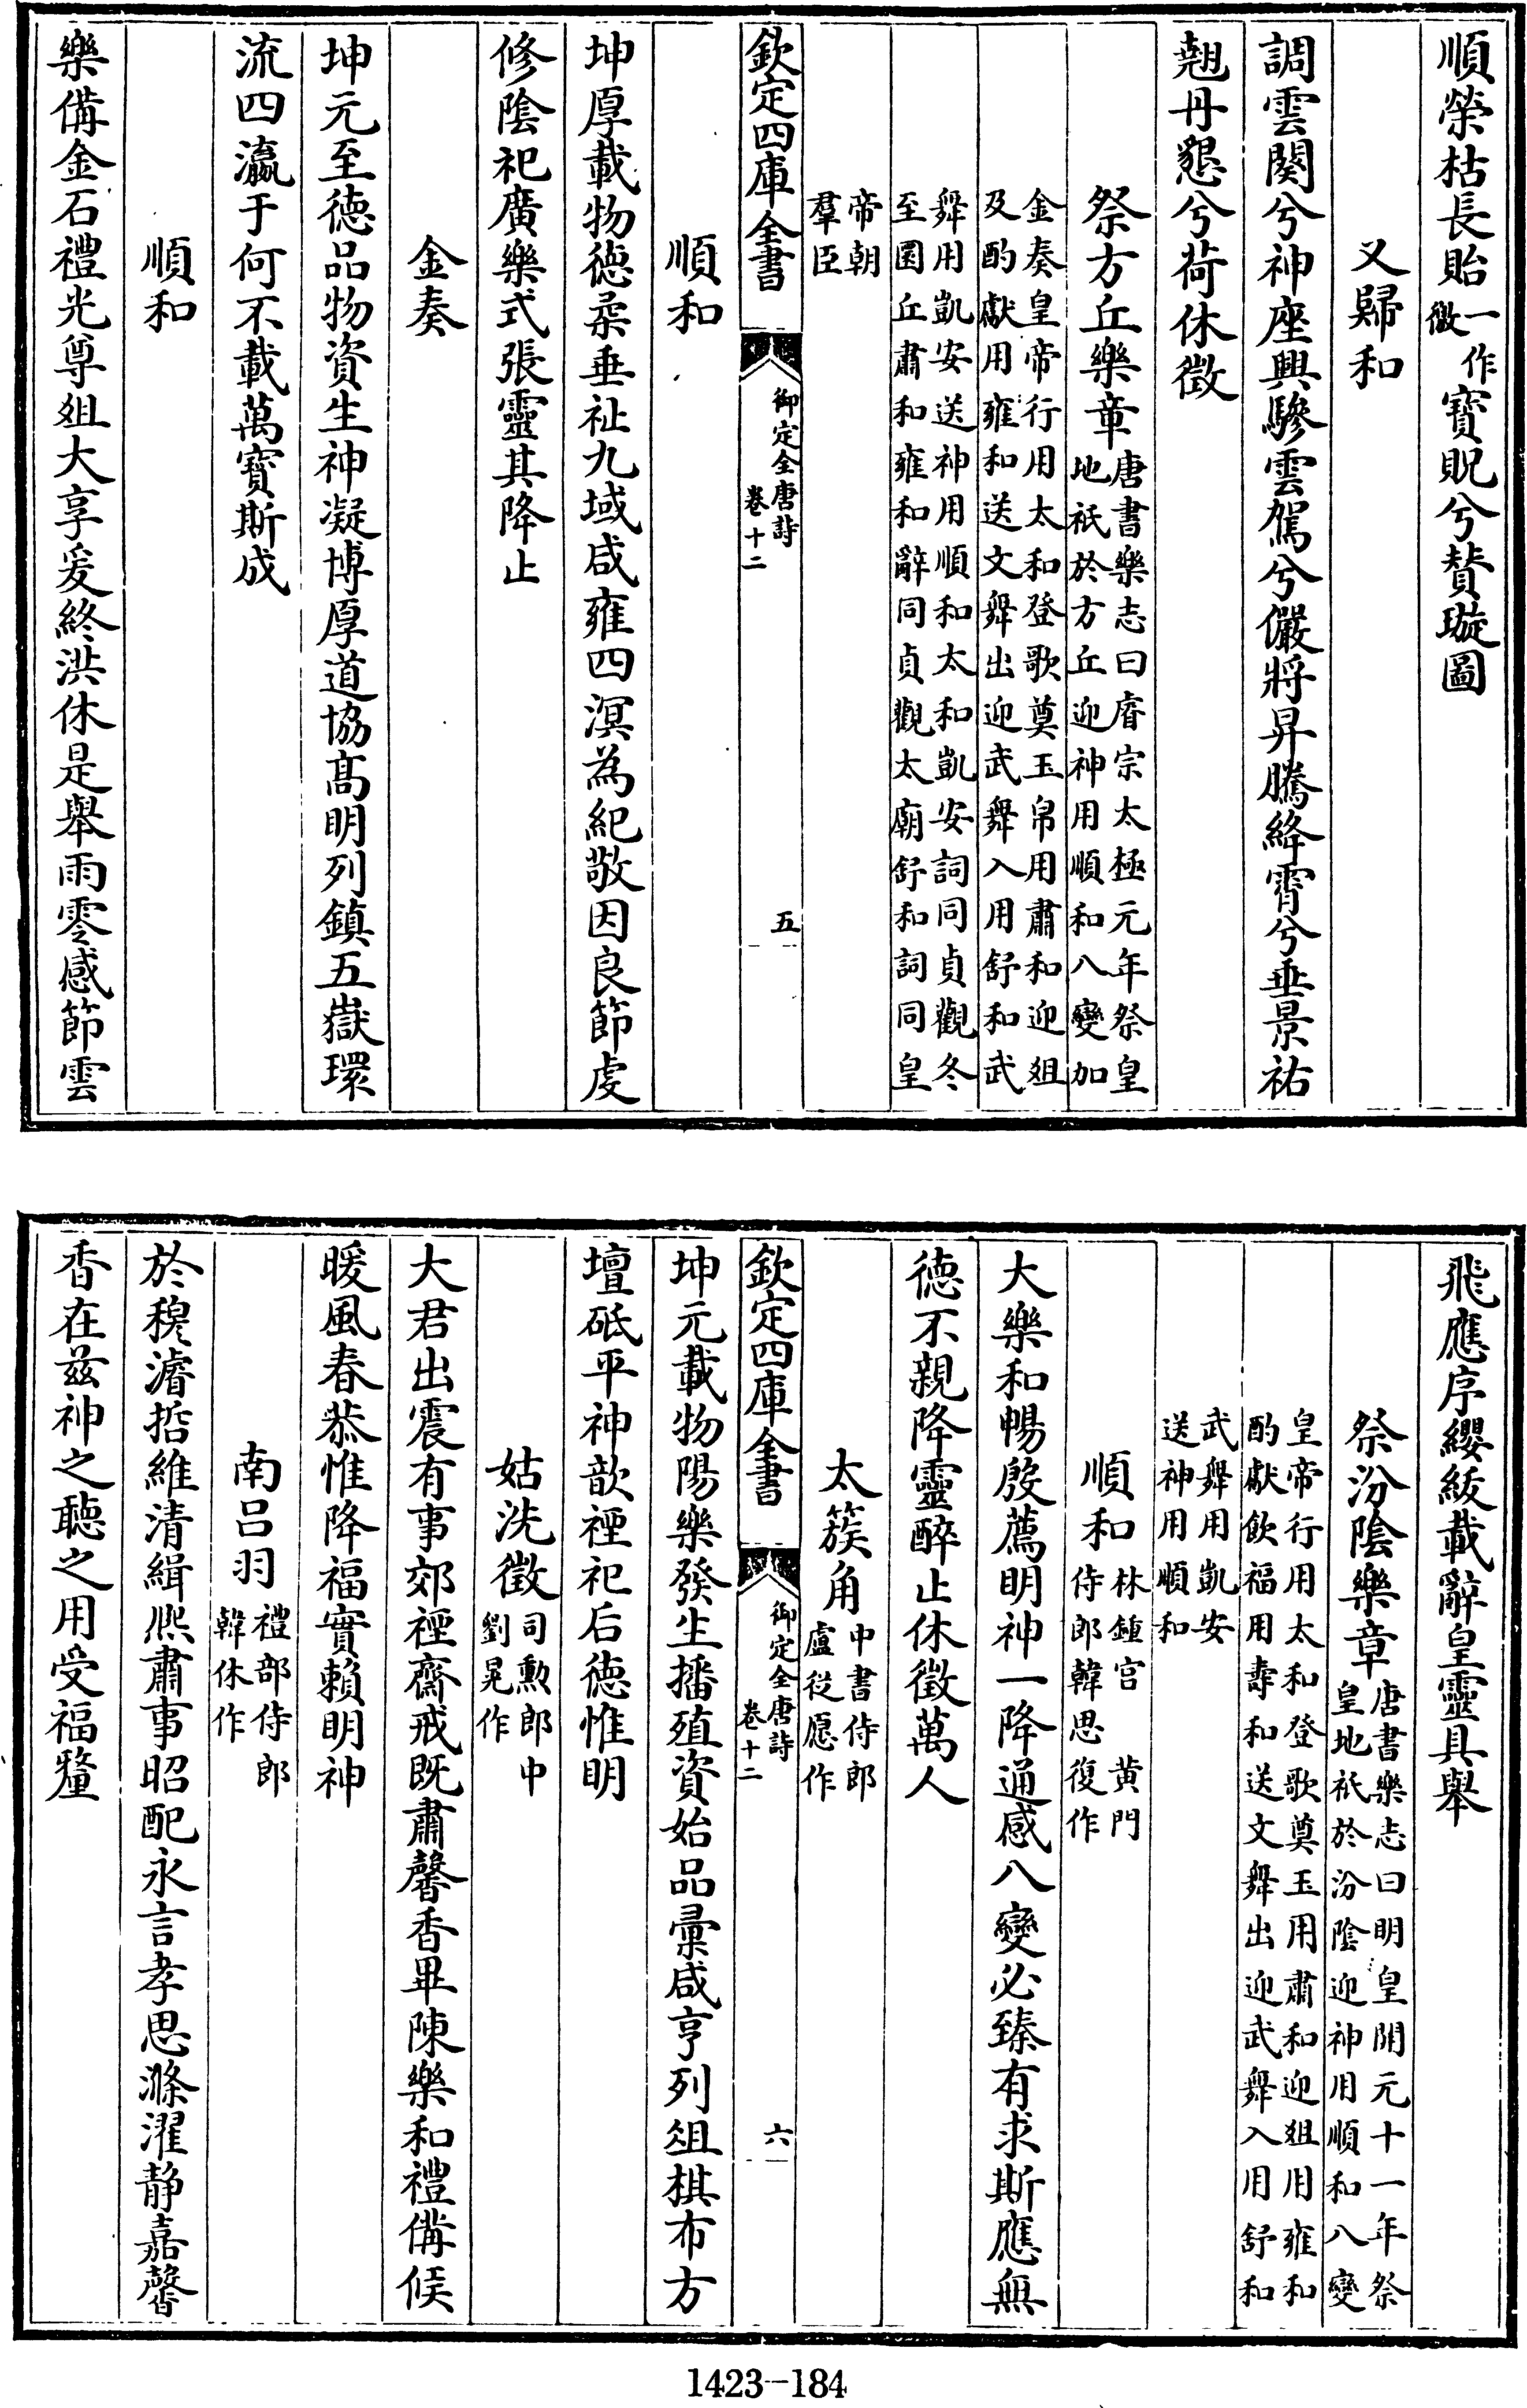 順榮枯長貽一作徽寳貺兮賛璇圖
又歸和
調雲闋兮神座興驂雲駕兮儼將昇騰絳霄兮垂景祐
翹丹懇兮荷休徴
祭方丘樂章唐書樂志曰睿宗太極元年祭皇
地祇於方丘迎神用順和八變加
金奏皇帝行用太和登歌奠玉帛用肅和迎俎
及酌獻用雍和送文舞出迎武舞入用舒和武
舞用凱安送神用順和太和凱安詞同貞觀冬
至圜丘肅和雍和辭同貞觀太廟舒和詞同皇
帝朝
羣臣
欽定四庫全書
御定全唐詩
卷十二
五
順和
坤厚載物德柔垂祉九域咸雍四溟為紀敬因良節虔
修陰祀廣樂式張靈其降止
金奏
坤元至德品物資生神凝博厚道協髙明列鎮五嶽環
流四瀛于何不載萬寳斯成
順和
樂備金石禮光尊俎大享爰終洪休是舉雨零感節雲
飛應序纓紱載辭皇靈具舉
祭汾陰樂章唐書樂志曰明皇開元十一年祭
皇地祇於汾陰迎神用順和八變
皇帝行用太和登歌奠玉用肅和迎俎用雍和
酌獻飲福用壽和送文舞出迎武舞入用舒和
武舞用凱安
送神用順和
順和林鍾宫 黄門
侍郎韓思復作
大樂和暢殷薦明神一降通感八變必臻有求斯應無
德不親降靈醉止休徴萬人
太簇角中書侍郎
盧從愿作
欽定四庫全書
御定全唐詩
卷十二
六
坤元載物陽樂發生播殖資始品彚咸亨列俎棋布方
壇砥平神歆禋祀后德惟明
姑洗徵司勲郎中
劉晃作
大君出震有事郊禋齋戒既肅馨香畢陳樂和禮備候
暖風春恭惟降福實賴明神
南呂羽禮部侍郎
韓休作
於穆濬哲維清緝熈肅事昭配永言孝思滌濯静嘉馨
香在兹神之聽之用受福釐
1423-184